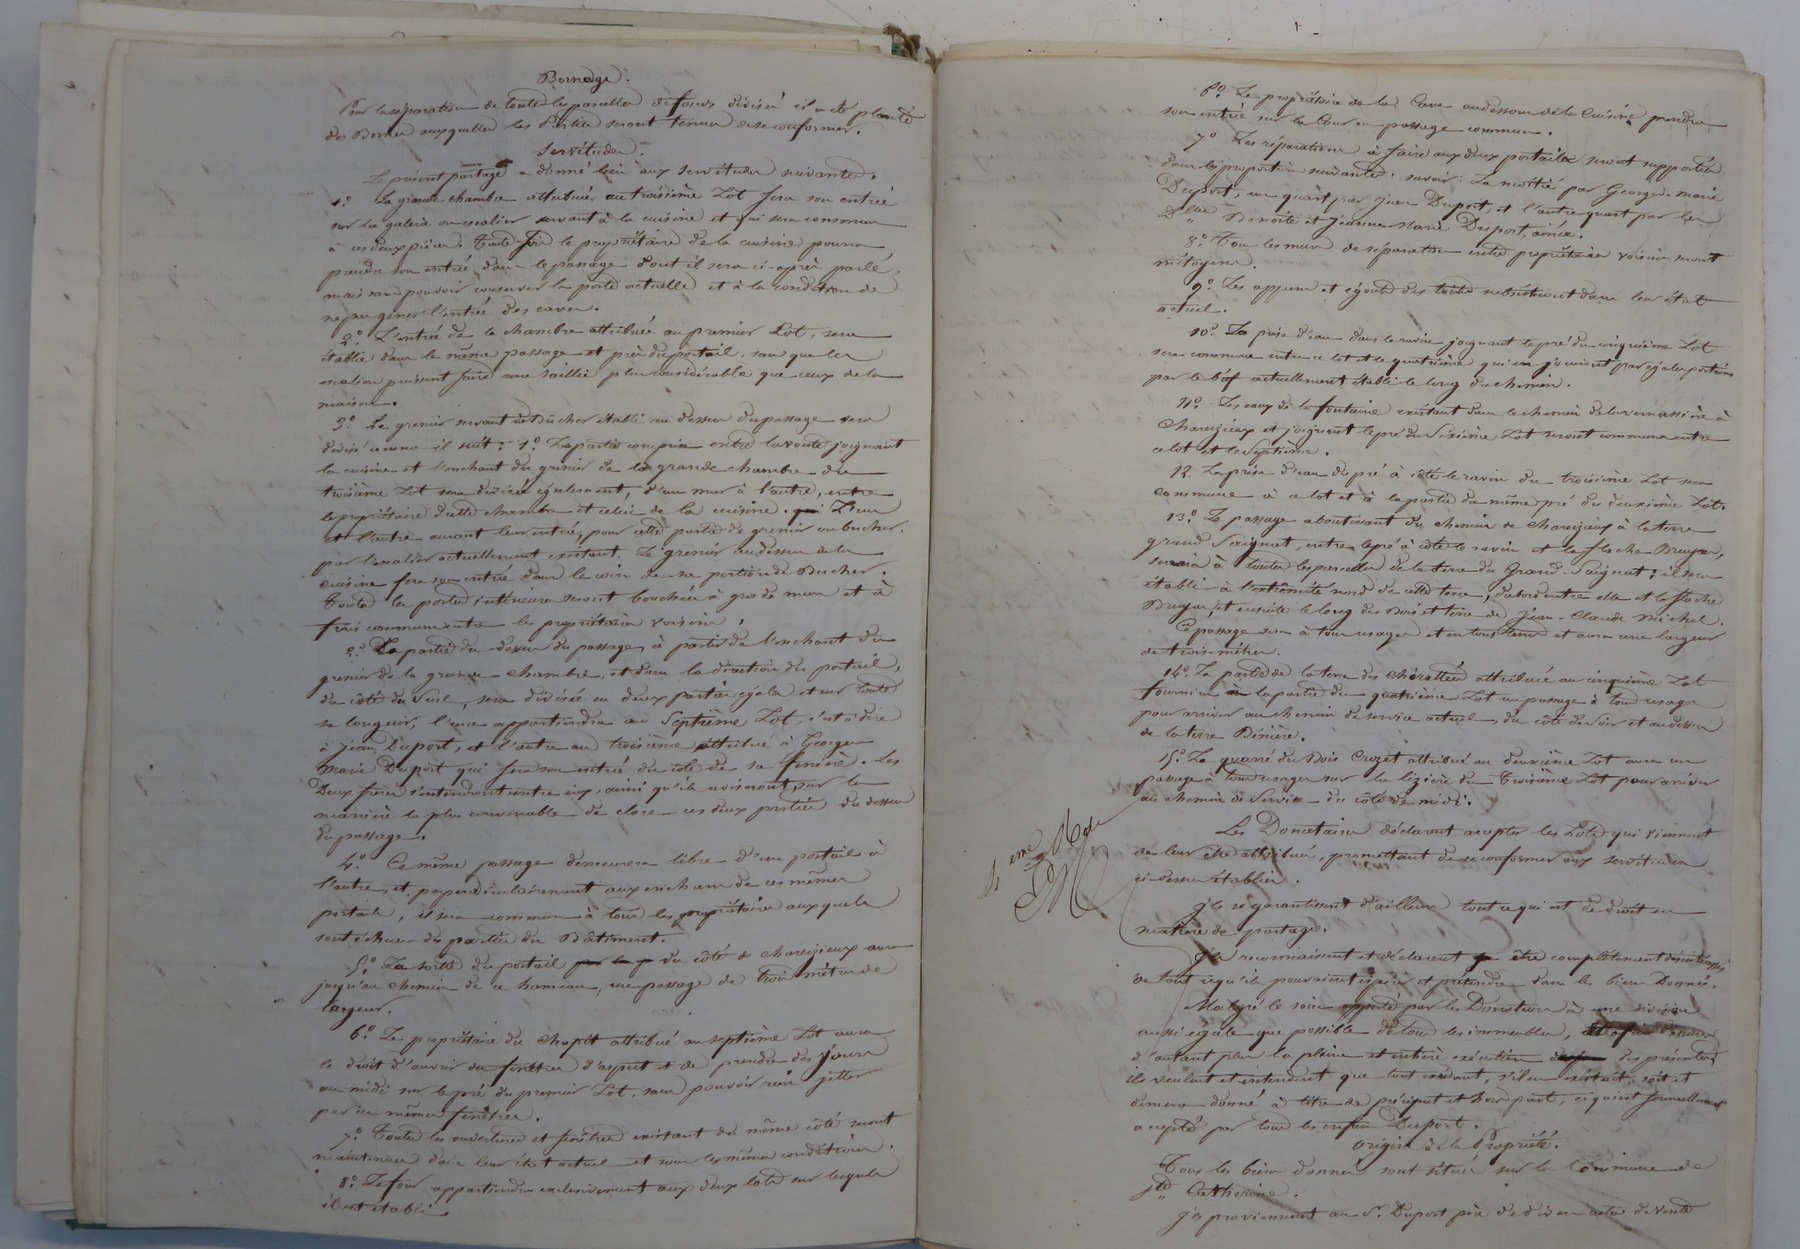 Bornage.
Pour la séparation de toutes les parcelles de fonds divisés il a été planté
des Bornes auxquelles les Parties seront tenues de se conformer.
Servitudes.
Le présent partage a donné lieu aux servitudes suivantes.
1.° La grande chambre attribuée au troisième Lot fera son entrée
sur la galerie ou escalier servant à la cuisine et qui sera commun
à ces deux pièces. Toute-fois le propriétaire de la cuisine pourra
prendre son entrée dans le passage dont il sera ci-après parlé,
mais sans pouvoir conserver la porte actuelle et à la condition de
ne pas gêner l'entrée des caves.
2.° L'entrée de la chambre attribuée au premier Lot, sera
établie dans le même passage et près du portail, sans que les
escaliers puissent faire une saillie plus considérable que ceux de la
maison.
3.° Le grenier servant de Bûcher établi au dessus du passage sera
divisé comme il suit: 1.° La partie comprise entre la voute joignant
la cuisine et l'enchant du grenier de la grande chambre du
troisième Lot sera divisée également, d'un mur à l'autre, entre
le propriétaire de cette chambre et celui de la cuisine. qui L'un
et l'autre auront leur entrée, pour cette partie de grenier ou bucher,
par l'escalier actuellement existant. Le grenier au dessus de la
cuisine fera son entrée dans le coin de sa portion de Bucher.
Toutes les portes intérieures seront bouchées à gros de mur et à
frais communs entre les propriétaires voisins.
2.° La partie du dessus du passage, à partir de l'enchant du
grenier de la grande chambre, et dans la direction du portail,
du côté du Seuil, sera divisée en deux parties égales et sur toute
sa longueur, l'une appartiendra au Septième Lot, c'est à dire
à Jean Duport, et l'autre au troisième attribué à Georges
Marie Duport qui fera son entrée du côté de sa fenière. Les
Deux frères s'entendront entre eux, ainsi qu'ils aviseront, sur la
manière la plus convenable de clore ces deux parties du dessus
du passage.
4.° Ce même passage demeurera libre d'un portail à
l'autre, et perpendiculairement aux enchans de ces mêmes
portails, il sera commun à tous les propriétaires auxquels
sont échues des parties du Bâtiment.
5.° La sortie du portail par la p du côté de Charezieux aura
jusqu'au chemin de ce hameau, un passage de trois mètres de
largeur.
6.° Le propriétaire du Chapit attribué au septième Lot aura
le droit d'ouvrir des fenêtres d'aspect et de prendre des jours
au midi sur le pré du premier Lot, sans pouvoir rien jetter
par ces mêmes fenêtres.
7.° Toutes les ouvertures et fenêtres existant du même côté seront
maintenues dans leur état actuel et sous les mêmes conditions.
8.° Le four appartiendra exclusivement aux deux lots sur lesquels
il est établi.
6.° Le propriétaire de la Cave au dessous de la Cuisine prendra
son entrée sur la Cour ou passage commun.
7.° Les réparations à faire aux deux portails seront supportées
dans les proportions suivantes: savoir: La moitié par Georges-Marie
Duport, un quart par Jean Duport, et l'autre quart par les
Dlles Benoîte et Jeanne Marie Duport, ainée.
8.° Tous les murs de séparation entre propriétaires voisins, seront
mitoyens.
9.° Les appens et égouts des toits subsisteront dans leur état
actuel.
10.° La prise d'eau dans le ravin joignant le pré du cinquième Lot
sera commune entre ce lot et le quatrième qui en jouiront par égales portions
par le béal actuellement établi le long du chemin.
11.° Les eaux de la fontaine existant dans le chemin de la vernassière à
Charezieux et joignant le pré du Sixième Lot seront communes entre
ce lot et le Septième.
12. La prise d'eau du pré à côté le ravin du troisième Lot sera
commune à ce lot et à la partie du même pré du deuxième Lot.
13.° Le passage aboutissant du chemin de Charezieux à la terre
grand Saignat, entre le pré à côté le ravin et la flache Bruyas,
servira à toutes les parcelles de la terre du Grand-Saignat; il sera
établi à l'extrêmité nord de cette terre, d'abord entre elle et la flache
Bruyas, et ensuite le long des Bois et terre de Jean-Claude Michel.
Ce passage sera à tous usages et en tous tems et aura une largeur
de trois mètres.
14.° La partie de la terre des Chérattes attribuée au cinquième Lot
fournira à la partie du quatrième Lot un passage à tous usages
pour arriver au chemin de service actuel, du côté de Soir et au dessus
de la terre Binière.
15.° Le quarré du Bois Crozet attribué au deuxième Lot aura un
passage à tous usages sur la lizière du Troisième Lot pour arriver
au chemin de Service du côté de midi.
4eme Rôle
Les Donataires déclarent accepter les Lots qui viennent
de leur être attribués, promettant de se conformer aux servitudes
ci-dessus établies.
Ils se garantissent d'ailleurs tout ce qui est de droit en
matière de partage.
Ils reconnaissent et déclarent être complètement désintéressés
de tout ce qu'ils pouvaient espérer et prétendre dans les biens Donnés.
Malgré le soin apporté par les Donateurs à une division
aussi égale que possible de tous les immeubles, et afin d'assurer
d'autant plus la pleine et entière exécution des présentes
ils veulent et entendent que tout excédant, s'il en existait, soit et
demeure donné à titre de préciput et hors part, ce qui est formellement
accepté par tous les enfans Duport.
Origine de la Propriété.
Tous les biens donnés sont situés sur la Commune de
Ste Catherine.
Ils proviennent au Sr. Duport père de divers actes de vente